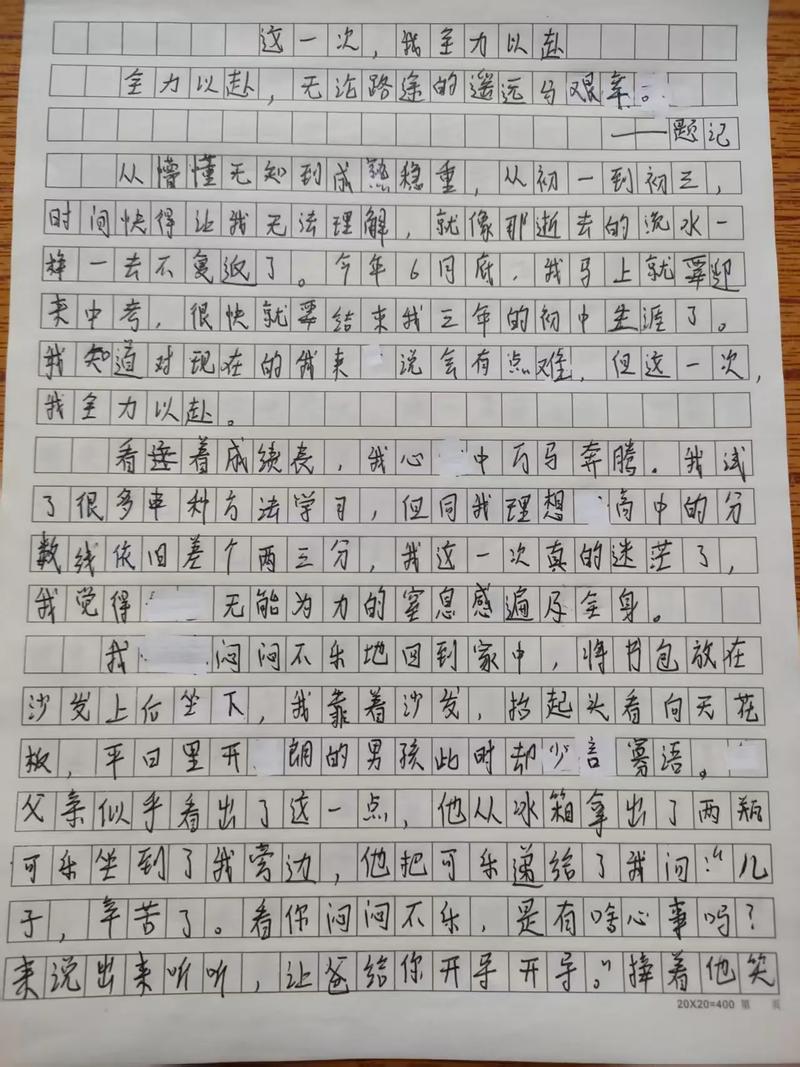 这一次，我全力以赴
全力以赴，无论路途的遥远与艰辛。
——题记
从懵懂无知到成熟稳重，从初一到初三，
时间快得让我无法理解，就像那逝去的流水一
样一去不复返了。今年6月底，我马上就要迎
来中考，很快就要结束我三年的初中生涯了。
我知道对现在的我来说会有点难，但这一次，
我全力以赴。
看着成绩表，我心中万马奔腾。我试
了很多种方法学习，但同我理想高中的分
数线依旧差个两三分，我这一次真的迷茫了，
我觉得无能为力的窒息感遍及全身。
我闷闷不乐地回到家中，将书包放在
沙发上后坐下，我靠着沙发，抬起头看向天花
板，平日里开朗的男孩此时却少言寡语。
父亲似乎看出了这一点，他从冰箱拿出了两瓶
可乐坐到了我旁边，他把可乐递给了我问：“儿
子，辛苦了。看你闷闷不乐，是有啥心事吗？
来说出来听听，让爸给你开导开导。”接着他笑
20X20=400 第 页